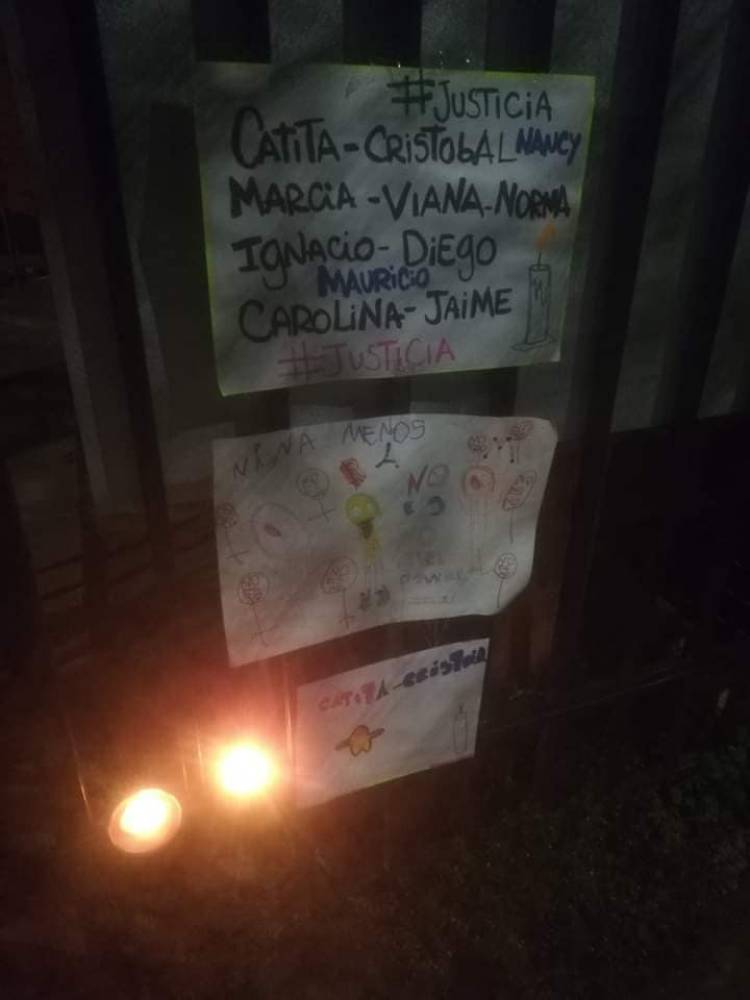 #JUSTICIA
CATITA-CRISTOBAL NANCY
MARCIA-VIANA-NORMA
IGNACIO-DIEGO
MAURICIO
CAROLINA-JAIME
#JUSTICIA
MENOS
NO
CATITA-